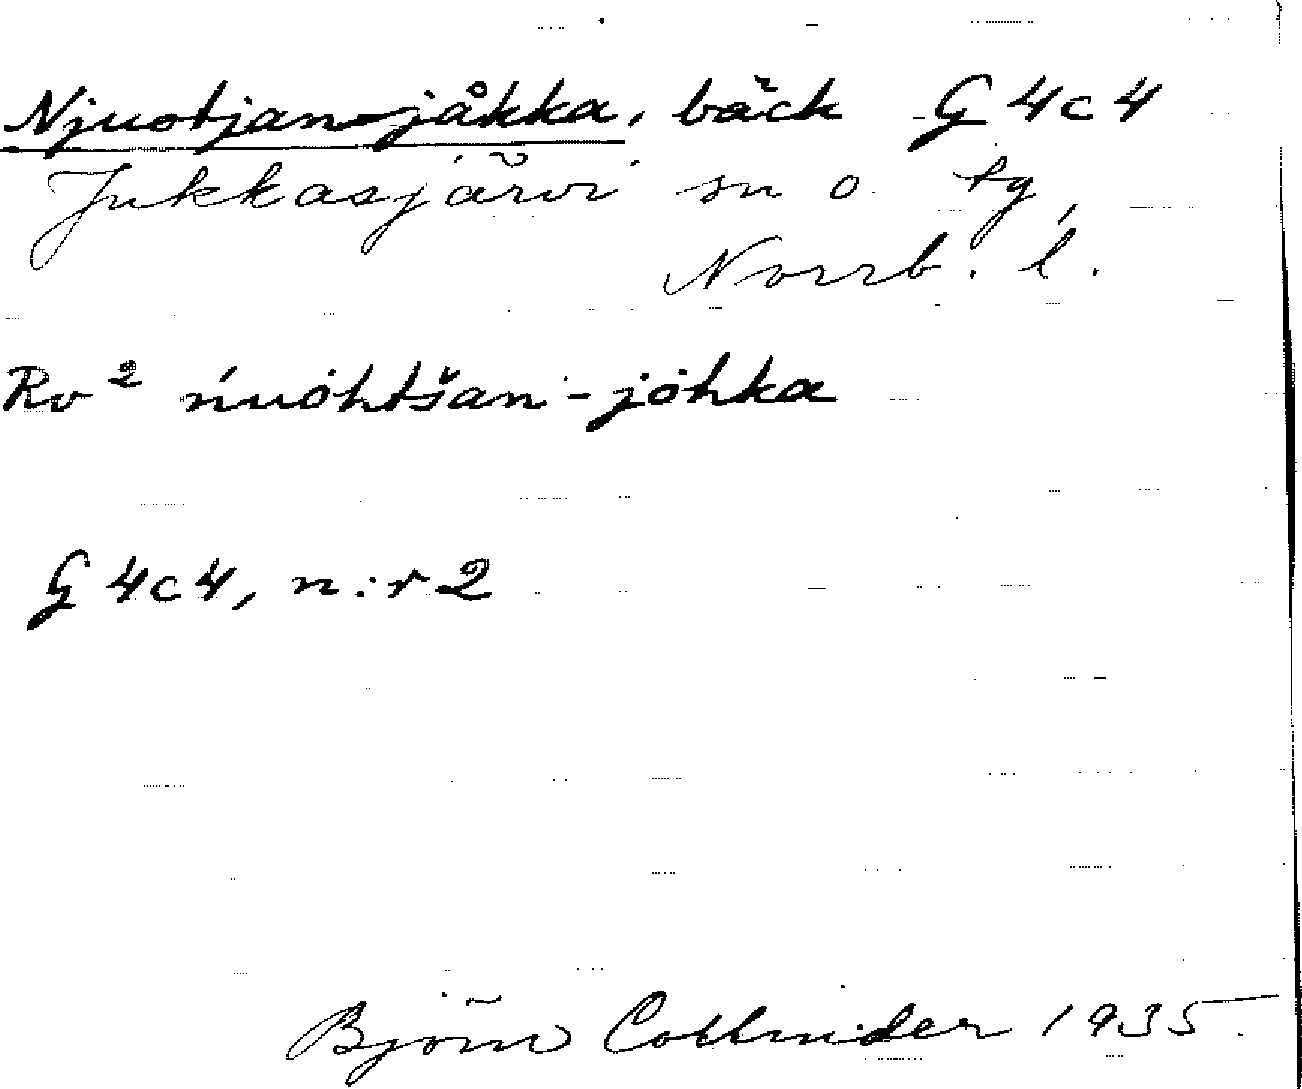 Njuotjan-jåkka, bäck G4c4
Jukkasjärvi sn o. tg,
Norrb. l.
Rv² ńuȯhtšan-jȯhka
G4c4, n:r 2
Björn Collinder 1935.